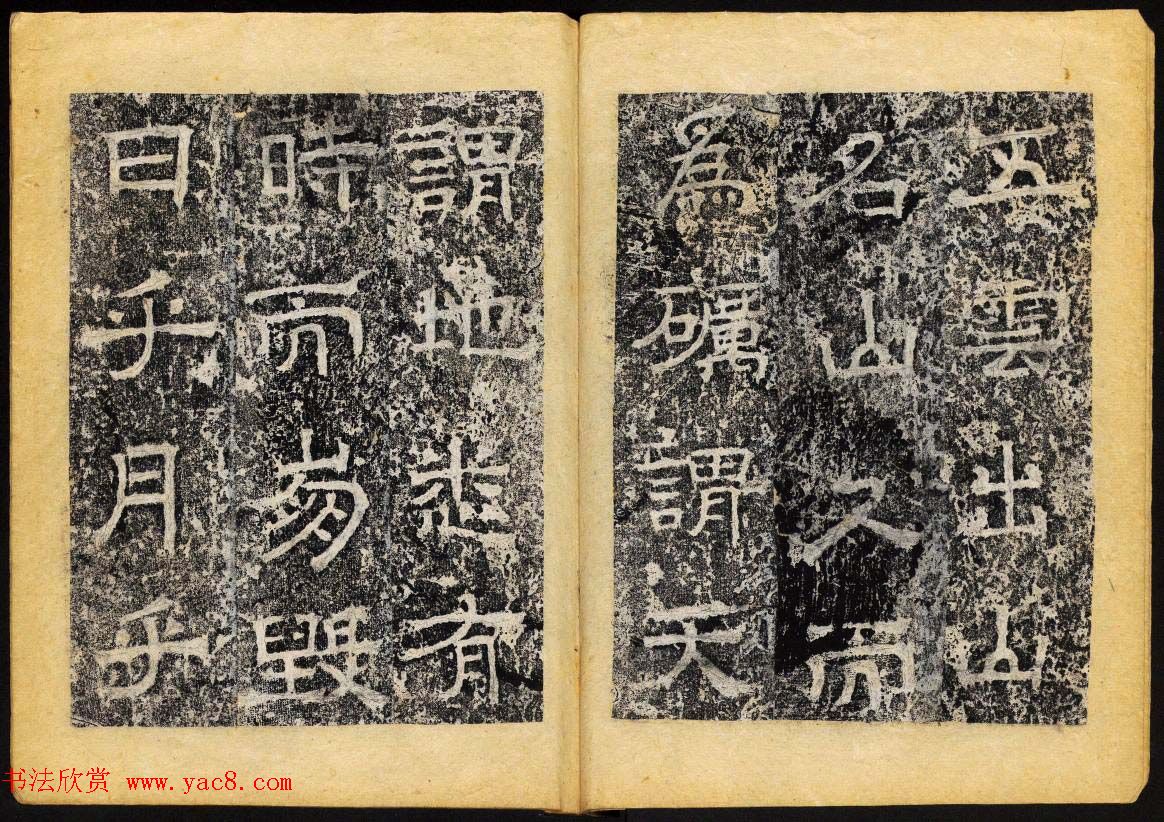 五雲出山
名山久而
為礪謂天
謂地有
時而毀
日乎月乎
书法欣赏 www.yac8.com